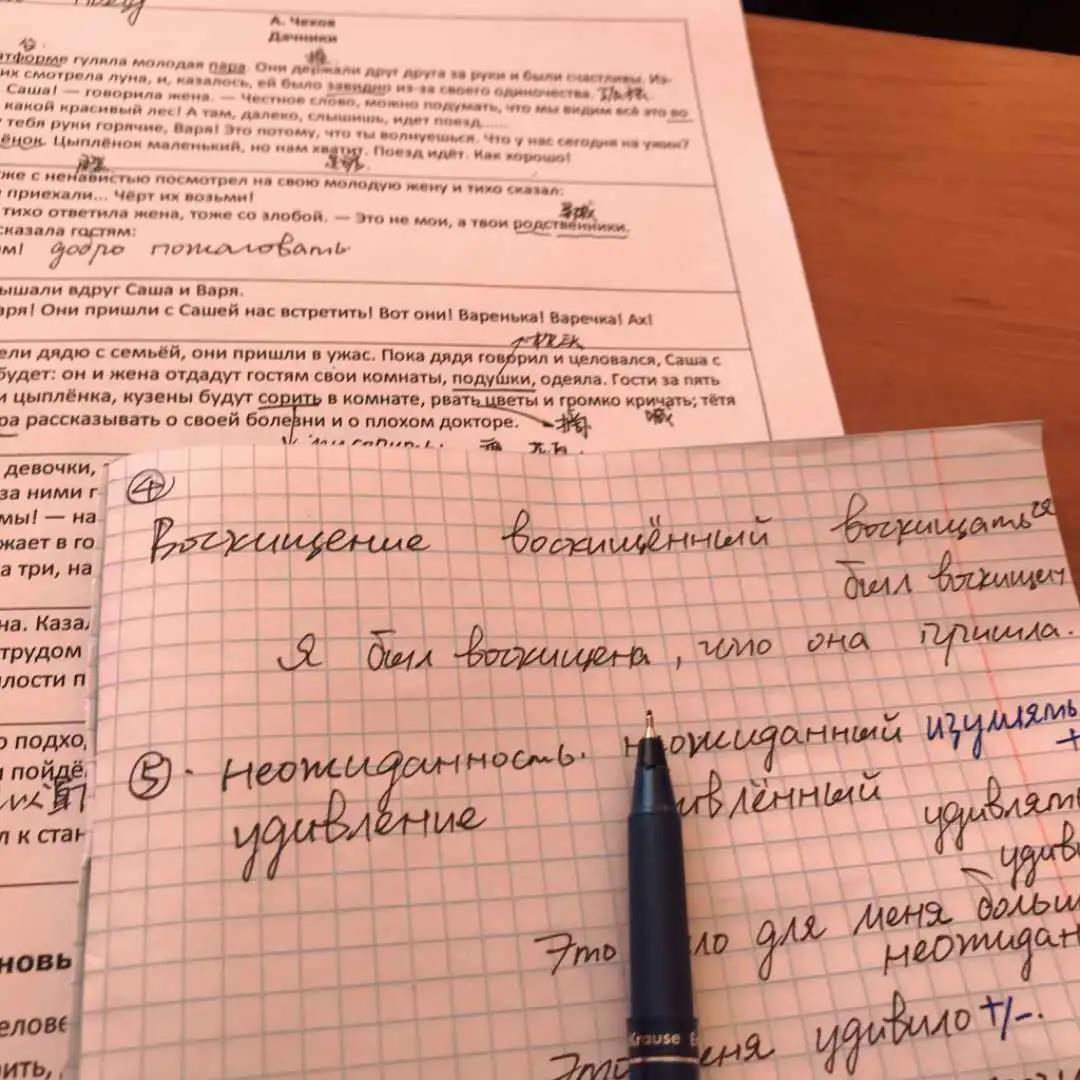 А. Чехов
Дачники
атформе гуляла молодая пара. Они держали друг друга за руки и были счастливы. Из-
их смотрела луна, и, казалось, ей было завидно из-за своего одиночества.
Саша! — говорила жена. — Честное слово, можно подумать, что мы видим всё это во
какой красивый лес! А там, далеко, слышишь, идет поезд......
тебя руки горячие, Варя! Это потому, что ты волнуешься. Что у нас сегодня на ужин?
ёнок. Цыплёнок маленький, но нам хватит. Поезд идёт. Как хорошо!
же с ненавистью посмотрел на свою молодую жену и тихо сказал:
приехали... Чёрт их возьми!
тихо ответила жена, тоже со злобой. — Это не мои, а твои родственники.
сказала гостям:
м! добро пожаловать
ышали вдруг Саша и Варя.
аря! Они пришли с Сашей нас встретить! Вот они! Варенька! Варечка! Ах!
ели дядю с семьёй, они пришли в ужас. Пока дядя говорил и целовался, Саша с
будет: он и жена отдадут гостям свои комнаты, подушки, одеяла. Гости за пять
и цыплёнка, кузены будут сорить в комнате, рвать цветы и громко кричать; тётя
ра рассказывать о своей болезни и о плохом докторе.
девочки,
за ними г
мы! — на
жает в го
а три, на
на. Каза
трудом
лости п
о подхо
и пойдё
л к стан
новь
елове
ить,
④
Восхищение восхищённый восхищаться
был восхищен
Я был восхищена, что она пришла.
⑤ · неожиданность. неожиданный изумлять
+
удивление ивлённый удивлять
удиви
Это ло для меня больш
неожидан
Это еня удивило +/-.
Krause